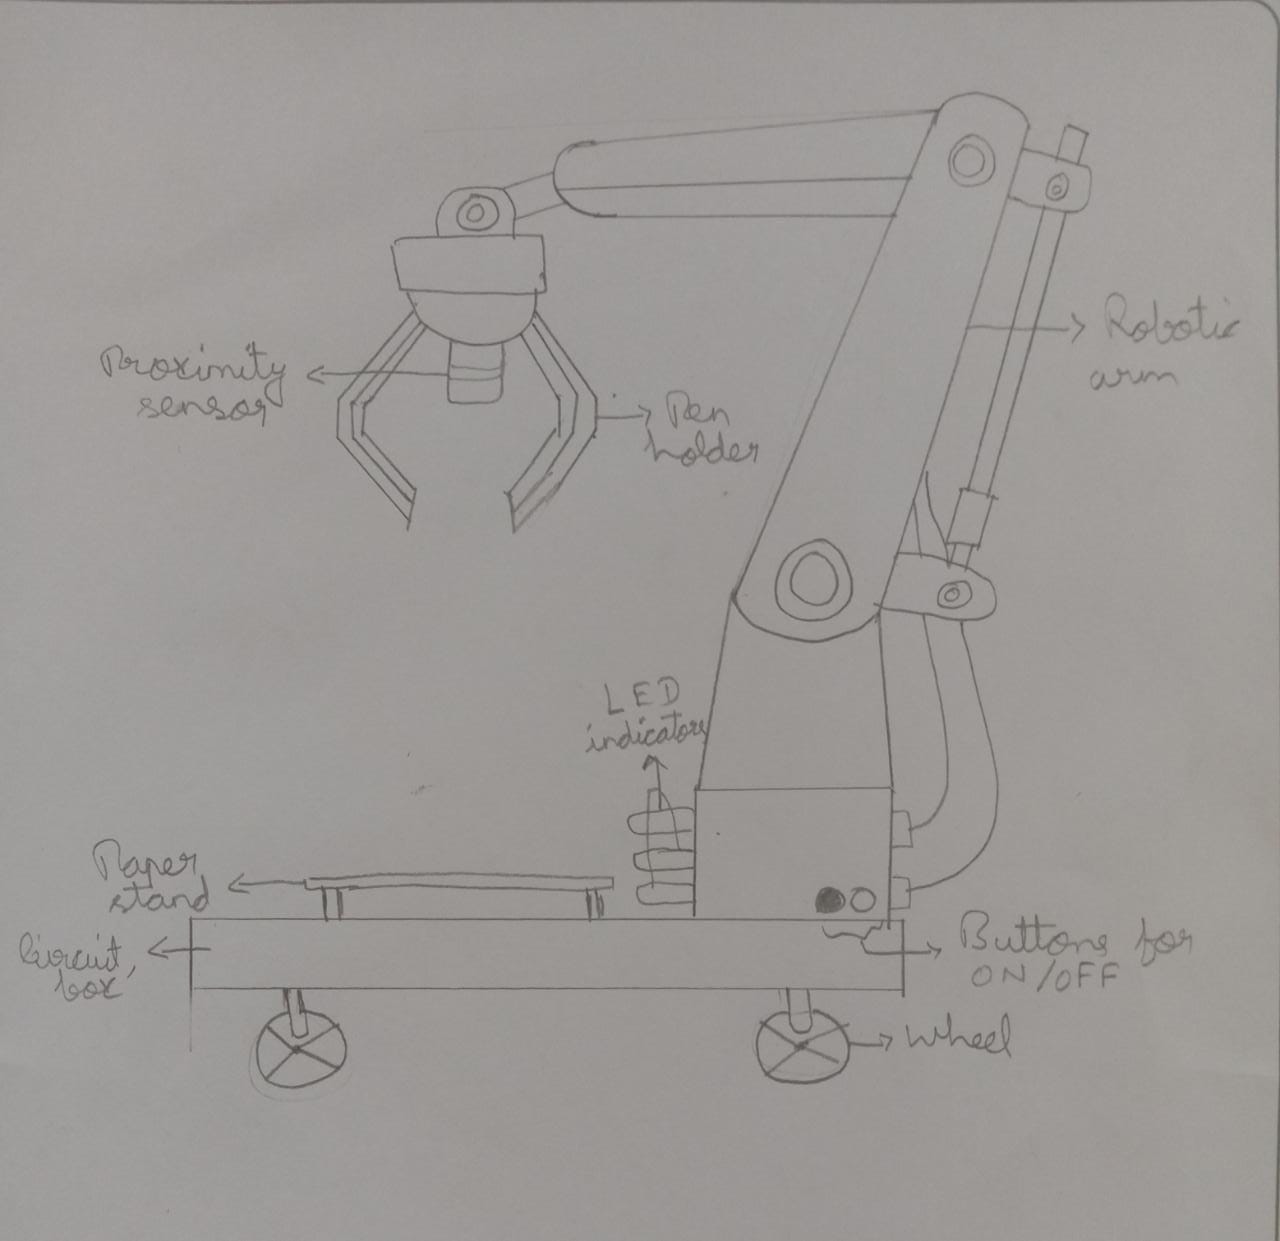 Robotic
arm
Proximity
sensor
Pen
holder
LED
indicators
Paper
stand
Circuit
box
Buttons for
ON/OFF
Wheel